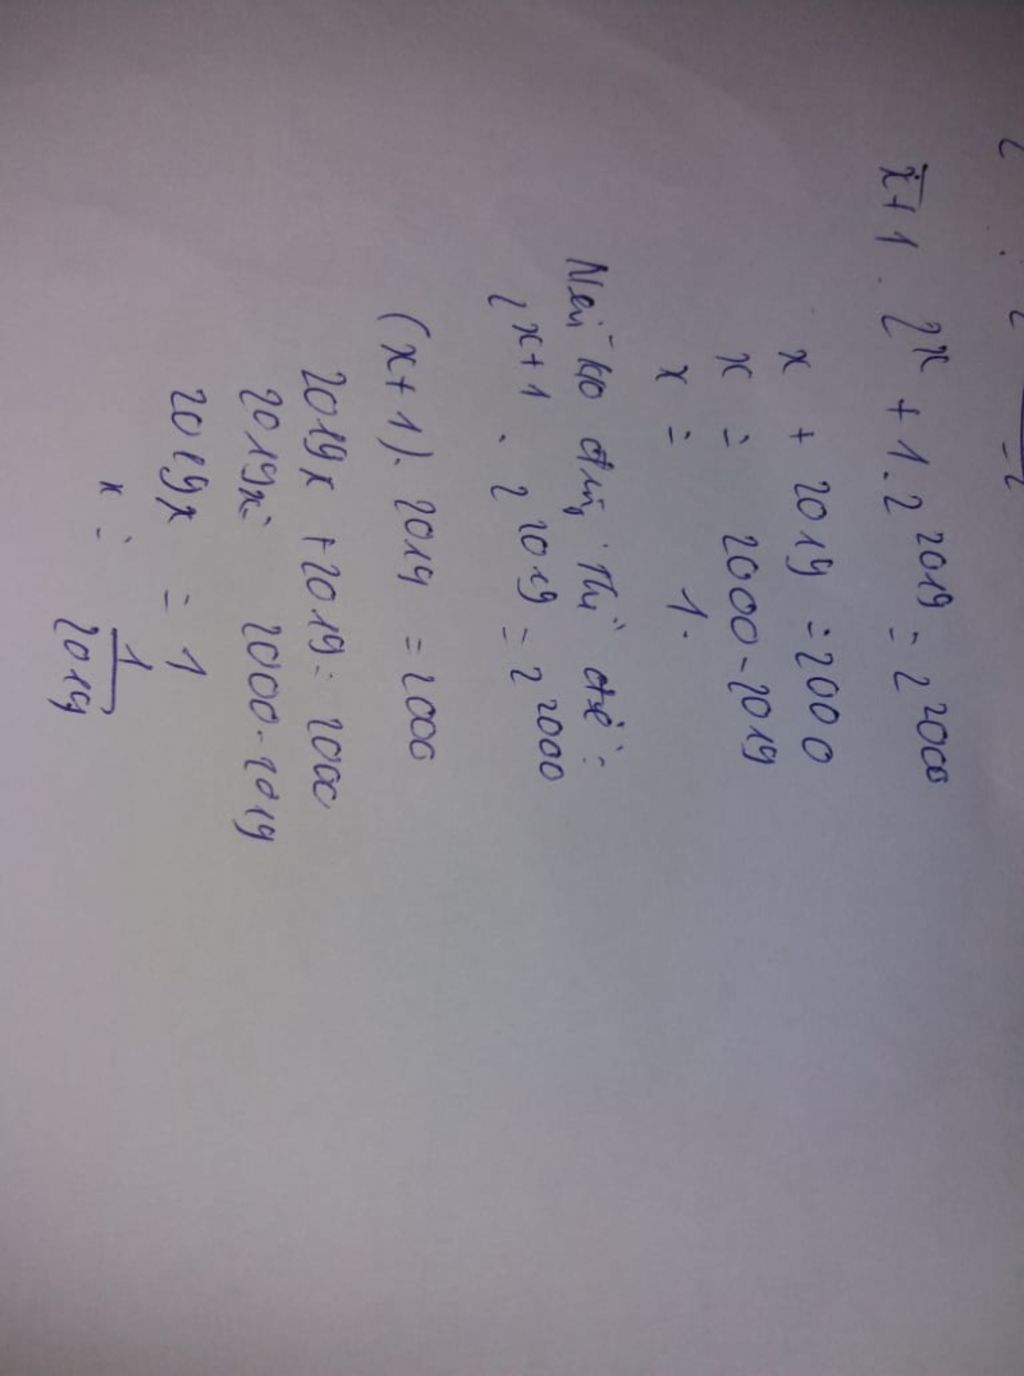 x+1. 2^x + 1.2^2019 = 2^2000
x + 2019 = 2000
x = 2000-2019
x = 1.
Nếu ko đúng thì đề :
2^x+1 . 2^2019 = 2^2000
(x+1). 2019 = 2000
2019x +2019= 2000
2019x= 2000-2019
2019x = 1
x = 1/2019